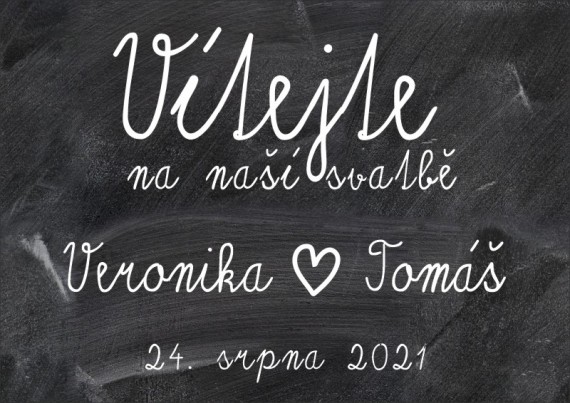 Vítejte
na naší svatbě
Veronika ♡ Tomáš
24. srpna 2021